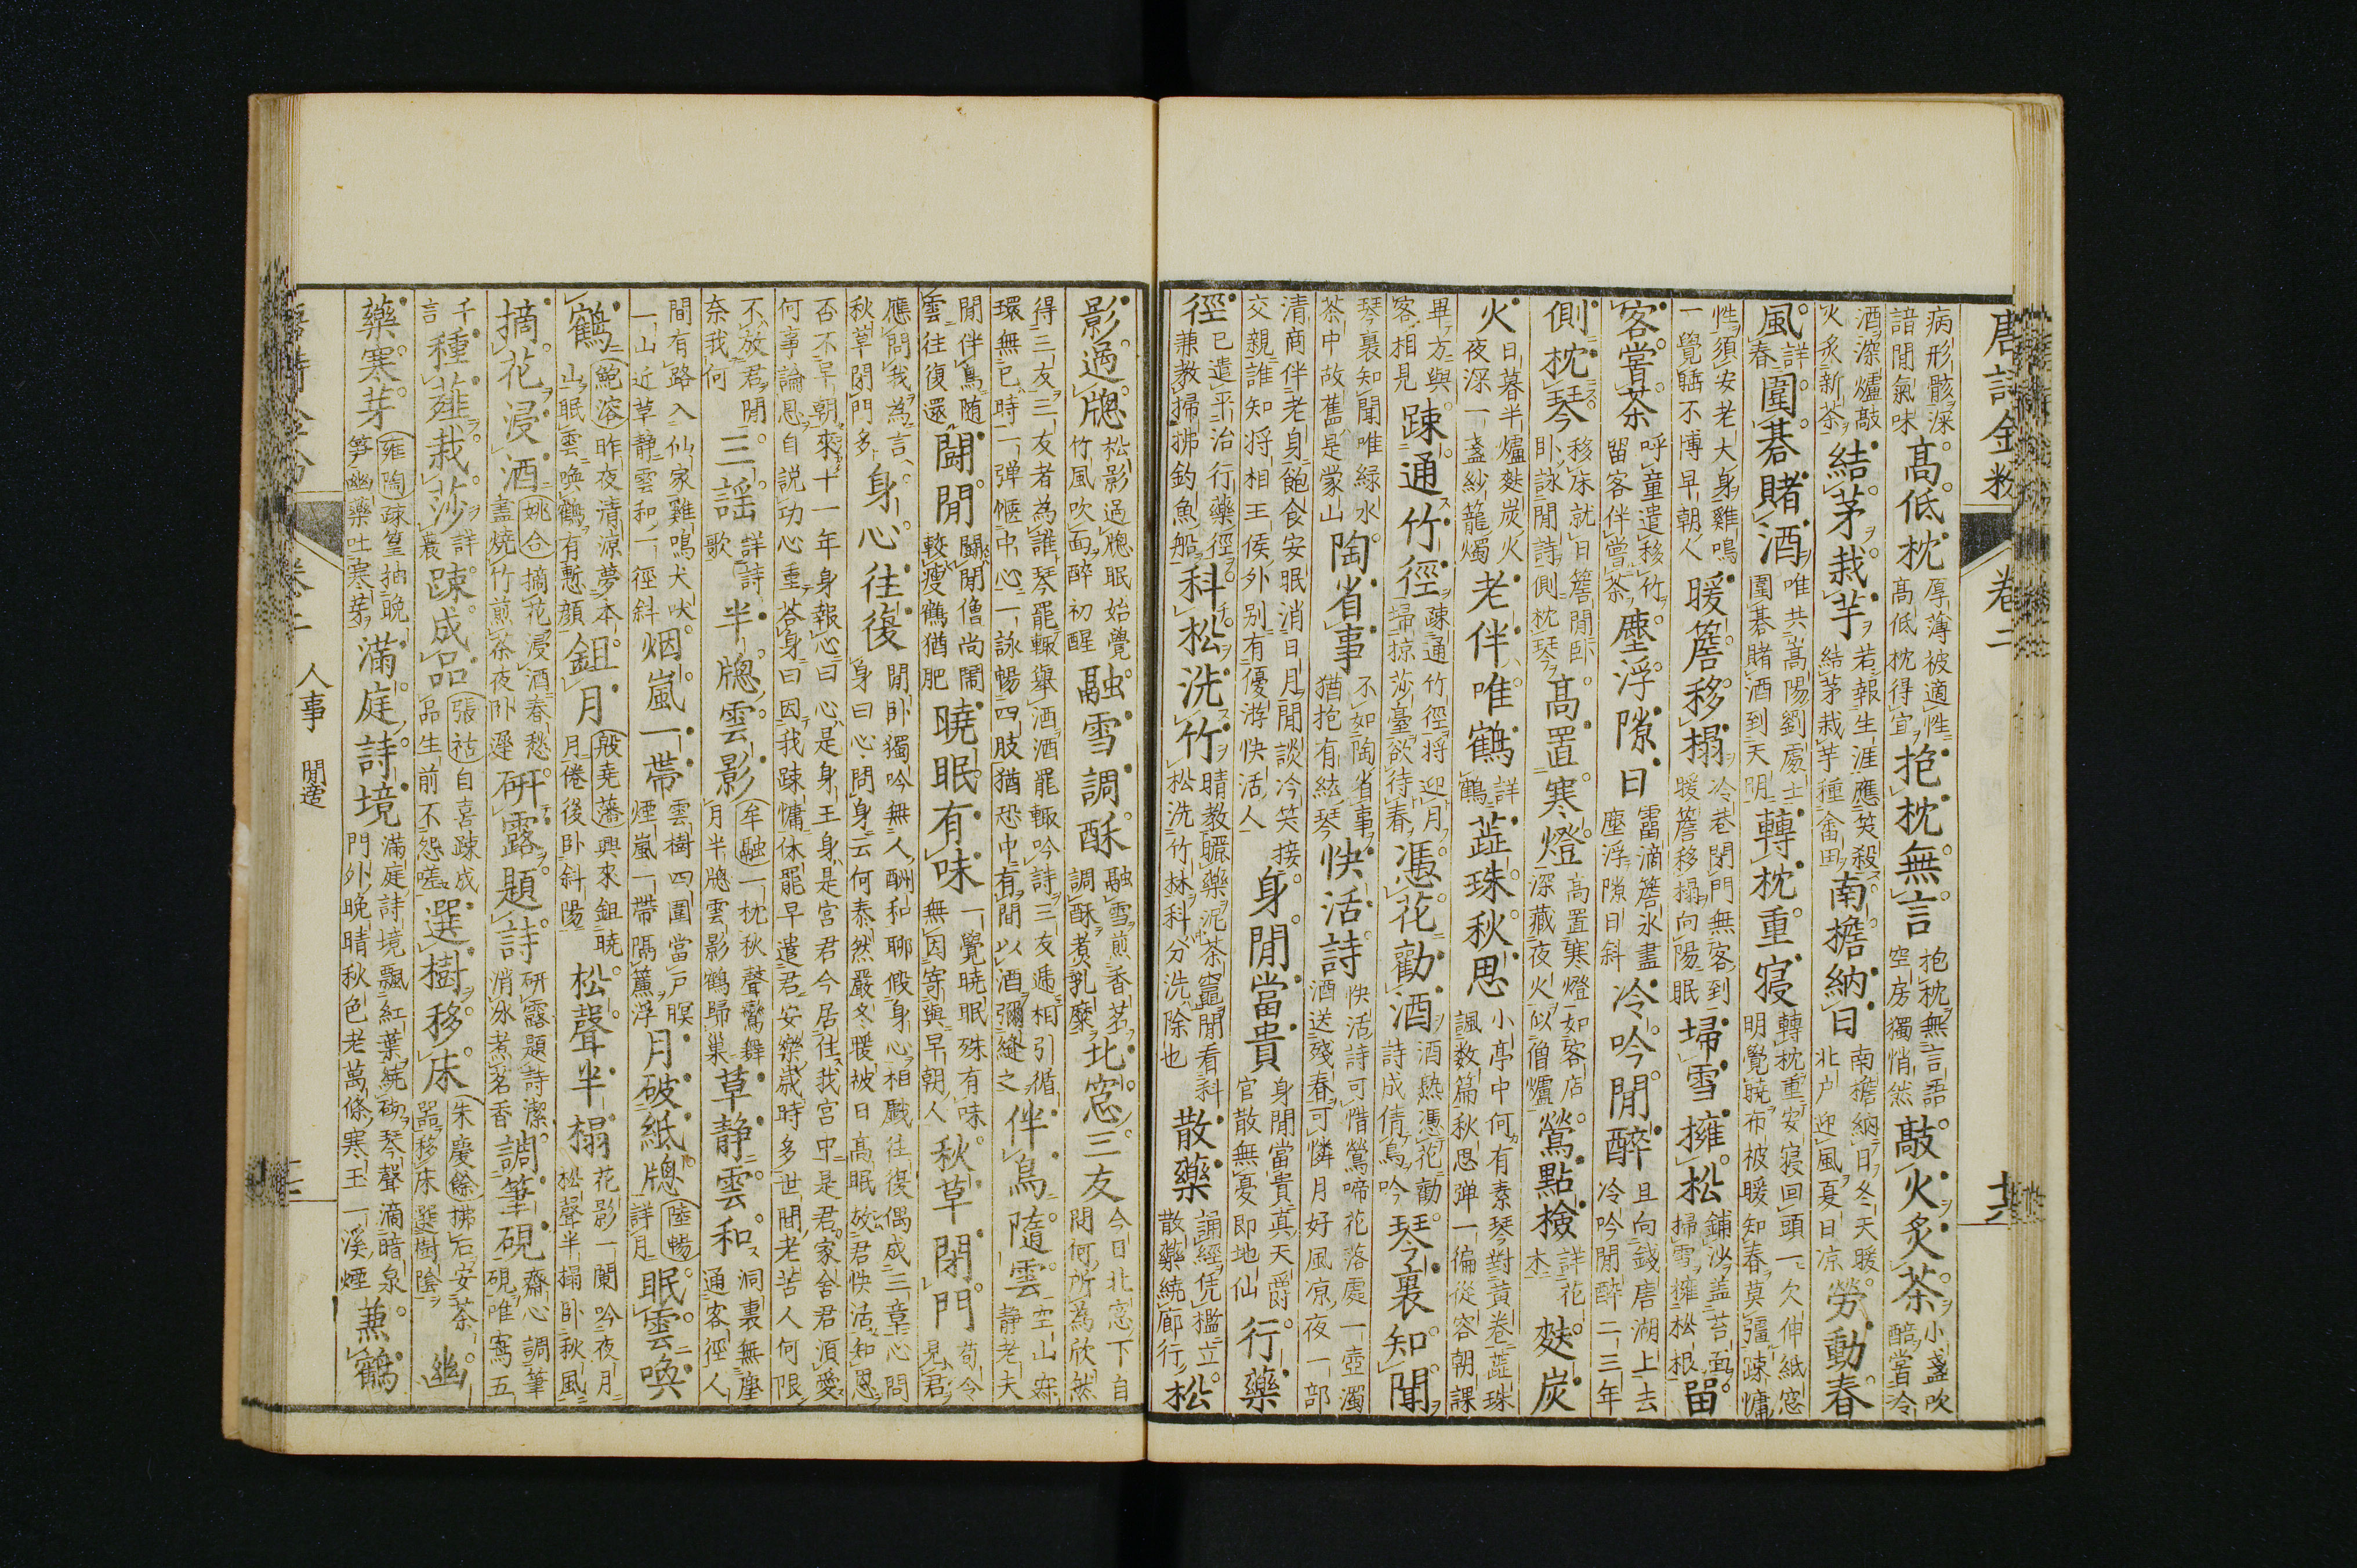 唐詩金粉　卷二　十六
病形骸深諳閒氣味　高低枕　厚薄被適性高低枕得宜　抱枕無言　抱枕無言語空房獨悄然　敲火炙茶　小盞吹醅嘗冷
酒深爐敲火炙新茶　結茅栽芋　若報生涯應笑殺結茅栽芋種畬田　南檐納日　南檐納日冬天暖北户迎風夏日凉　勞動春
風　詳春　圍碁賭酒　唯共嵩陽劉處士圍碁賭酒到天明　轉枕重寝　轉枕重安寝回頭一欠伸紙窓明覺曉布被暖知春莫彊踈慵
性須安老大身雞鳴一覺睡不博早朝人　暖簷移榻　冷巷閉門無客到暖簷移榻向陽眠　埽雪擁松　鋪沙盖苔面掃雪擁松根　留
客嘗茶　呼童遣移竹留客伴嘗茶　塵浮隙日　霤滴簷氷盡塵浮隙日斜　冷吟閒醉　且向錢唐湖上去冷吟閒醉二三年
側枕琴　移床就日簷閒臥卧詠閒詩側枕琴　高置寒燈　高置寒燈如客店深藏夜火似僧爐　鶯點檢　詳花木　麩炭
火　日暮半爐麩炭火夜深一盞紗籠燭　老伴唯鶴　詳鶴　蕋珠秋思　小亭中何有素琴對黃卷蕋珠諷数篇秋思弹一徧從容朝課
畢方與客相見　踈通竹徑　踈通竹徑将迎月埽掠莎臺欲待春　憑花勸酒　酒熱憑花勸詩成倩鳥吟　琴裏知聞
琴裏知聞唯綠水茶中故舊是蒙山　陶省事　不如陶省事猶抱有絃琴　快活詩　快活詩可惜鶯啼花落處一壺濁酒送殘春可憐月好風凉夜一部
清商伴老身飽食安眠消日月閒談冷笑接交親誰知将相王侯外别有優游快活人　身閒當貴　身閒當貴真天爵官散無憂即地仙　行藥
徑　已遣平治行藥徑兼教掃拂釣魚船　科松洗竹　晴教曬藥泥茶竈閒看科松洗竹林科分洗除也　散藥　誦經凭檻立散藥繞廊行　松
影過牕　松影過牕眠始覺竹風吹面醉初醒　融雪調酥　融雪煎香茗調酥煮乳糜　北窓三友　今日北窓下自問何所為欣然
得三友三友者為誰琴罷輙舉酒酒罷輙吟詩三友遞相引循環無已時一弹愜中心一詠暢四肢猶恐中有間以酒彌縫之　伴鳥隨雲　空山寂静老夫
閒伴鳥随雲往復還　鬪閒　鬪閒僧尚鬧較瘦鶴猶肥　曉眠有味　一覺曉眠殊有味無因寄與早朝人　秋草閉門　苟令見君
應問我為言秋草閉門多　身心往復　閒卧獨吟無人酬和聊假身心相戲往復偶成三章心問身曰心問身云何泰然嚴冬暖被日高眠放君快活知恩
否不早朝來十一年身報心曰心是身王身是宫君今居住我宫中是君家舍君須愛何事論恩自説功心重荅身曰因我踈慵休罷早遣君安樂歲時多世間老苦人何限
不放君閒奈我何　三謡　詳詩歌　半牕雲影　牟融一枕秋聲鸞舞月半牕雲影鶴歸巢　草静雲和　洞裏無塵通客徑人
間有路入仙家雞鳴犬吠一山近草静雲和一徑斜　烟嵐一帶　雲樹四圍當户暝煙嵐一帶隔簾浮　月破紙牕　陸暢詳月　眠雲喚
鶴　鮑溶昨夜清涼夢本山眠雲喚鶴有慙顔　鉏月　殷堯藩興來鉏曉月倦後卧斜陽　松聲半榻　花影一闌吟夜月松聲半榻卧秋風
摘花浸酒　姚合摘花浸酒春愁盡燒竹煎茶夜卧遲　研露題詩　研露題詩潔消氷煮茗香　調筆硯　齋心調筆硯唯寫五
千言　種薤栽莎　詳裏　踈成品　張祜自喜踈成品生前不怨嗟　選樹移床　朱慶餘拂石安茶器移床選樹陰　幽
藥寒芽　雍陶疎篁抽晚笋幽藥吐寒芽　滿庭詩境　滿庭詩境飄紅葉繞砌琴聲滴暗泉門外晚晴秋色老萬條寒玉一溪煙　蕪鶴
卷二　人事　閒適